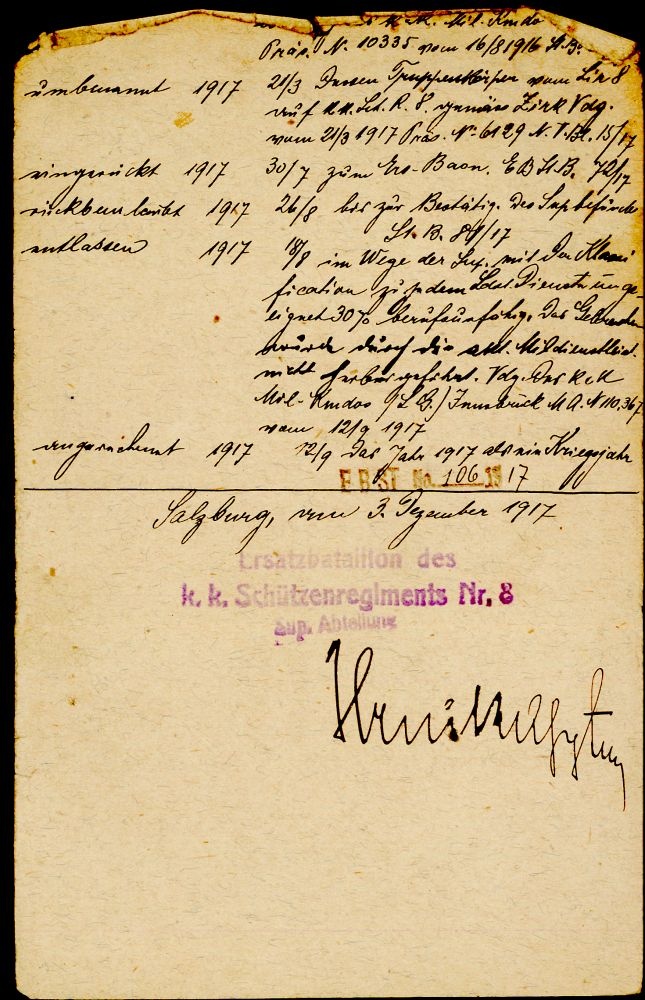 k. k. Mil. Kmdo
Präs. N. 10335 vom 16/8 1916 St. B.
umbenannt 1917 21/3 Dessen Truppenkörper vom
auf k.k. Sch. R. 8. gemäss Zirk Vdg.
vom 21/3 1917 Präs. Nº 6129 N. V. Bl. 15/17
eingerückt 1917 30/7 zum Ers. Baon. E B St. B. 72/17
rückbeurlaubt 1917 26/8 bis zur Bestätig. des Sup befunde
St. B. /17
entlassen 1917 im Wege der Sup. mit der Klassi
fication zu jedem Dienste unge-
eignet 30% berufsunfähig. Das Gebrechen
wurde durch die akt. Mil dienstleist.
nicht herbeigeführt. Vdg. des k.u.k.
Mil. Kmdos Innsbruck M. A. N 110,367
vom 12/9 1917
angerechnet 1917 12/9 das Jahr 1917 als ein Kriegsjahr
E B ST No. 106 1917
Salzburg, am 3. Dezember 1917
Ersatzbataillon des
k. k. Schützenregiments Nr. 8
Sup. Abteilung